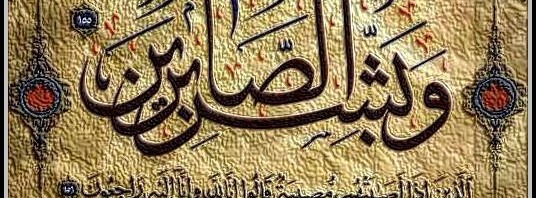 وَبَشِّرِ الصَّابِرِينَ ١٥٥
الَّذِينَ إِذَا أَصَابَتْهُم مُّصِيبَةٌ قَالُوا إِنَّا لِلَّهِ وَإِنَّا إِلَيْهِ رَاجِعُونَ ١٥٦